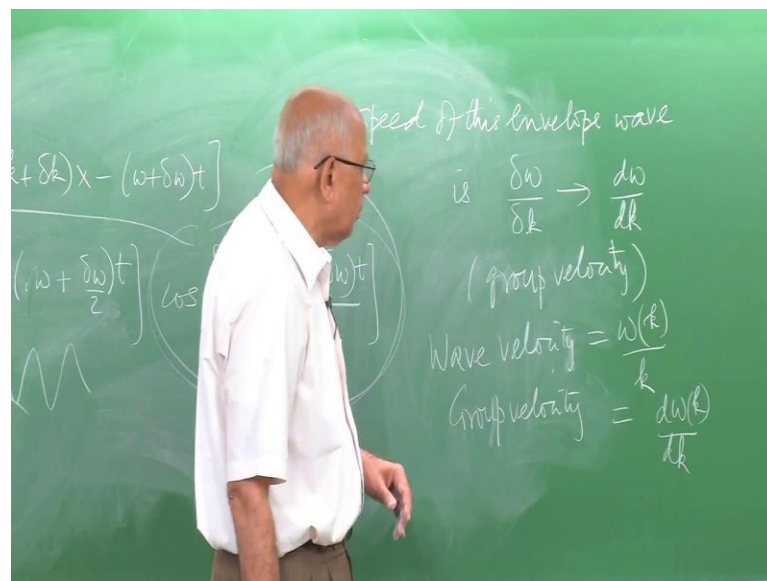 k + δk)x − (ω+δω)t]
(ω + δω/2)t] (cos δω)t]
speed of this envelope wave
is δω/δk → dω/dk
(group velocity)
Wave velocity = ω(k)/k
Group velocity = dω(k)/dk